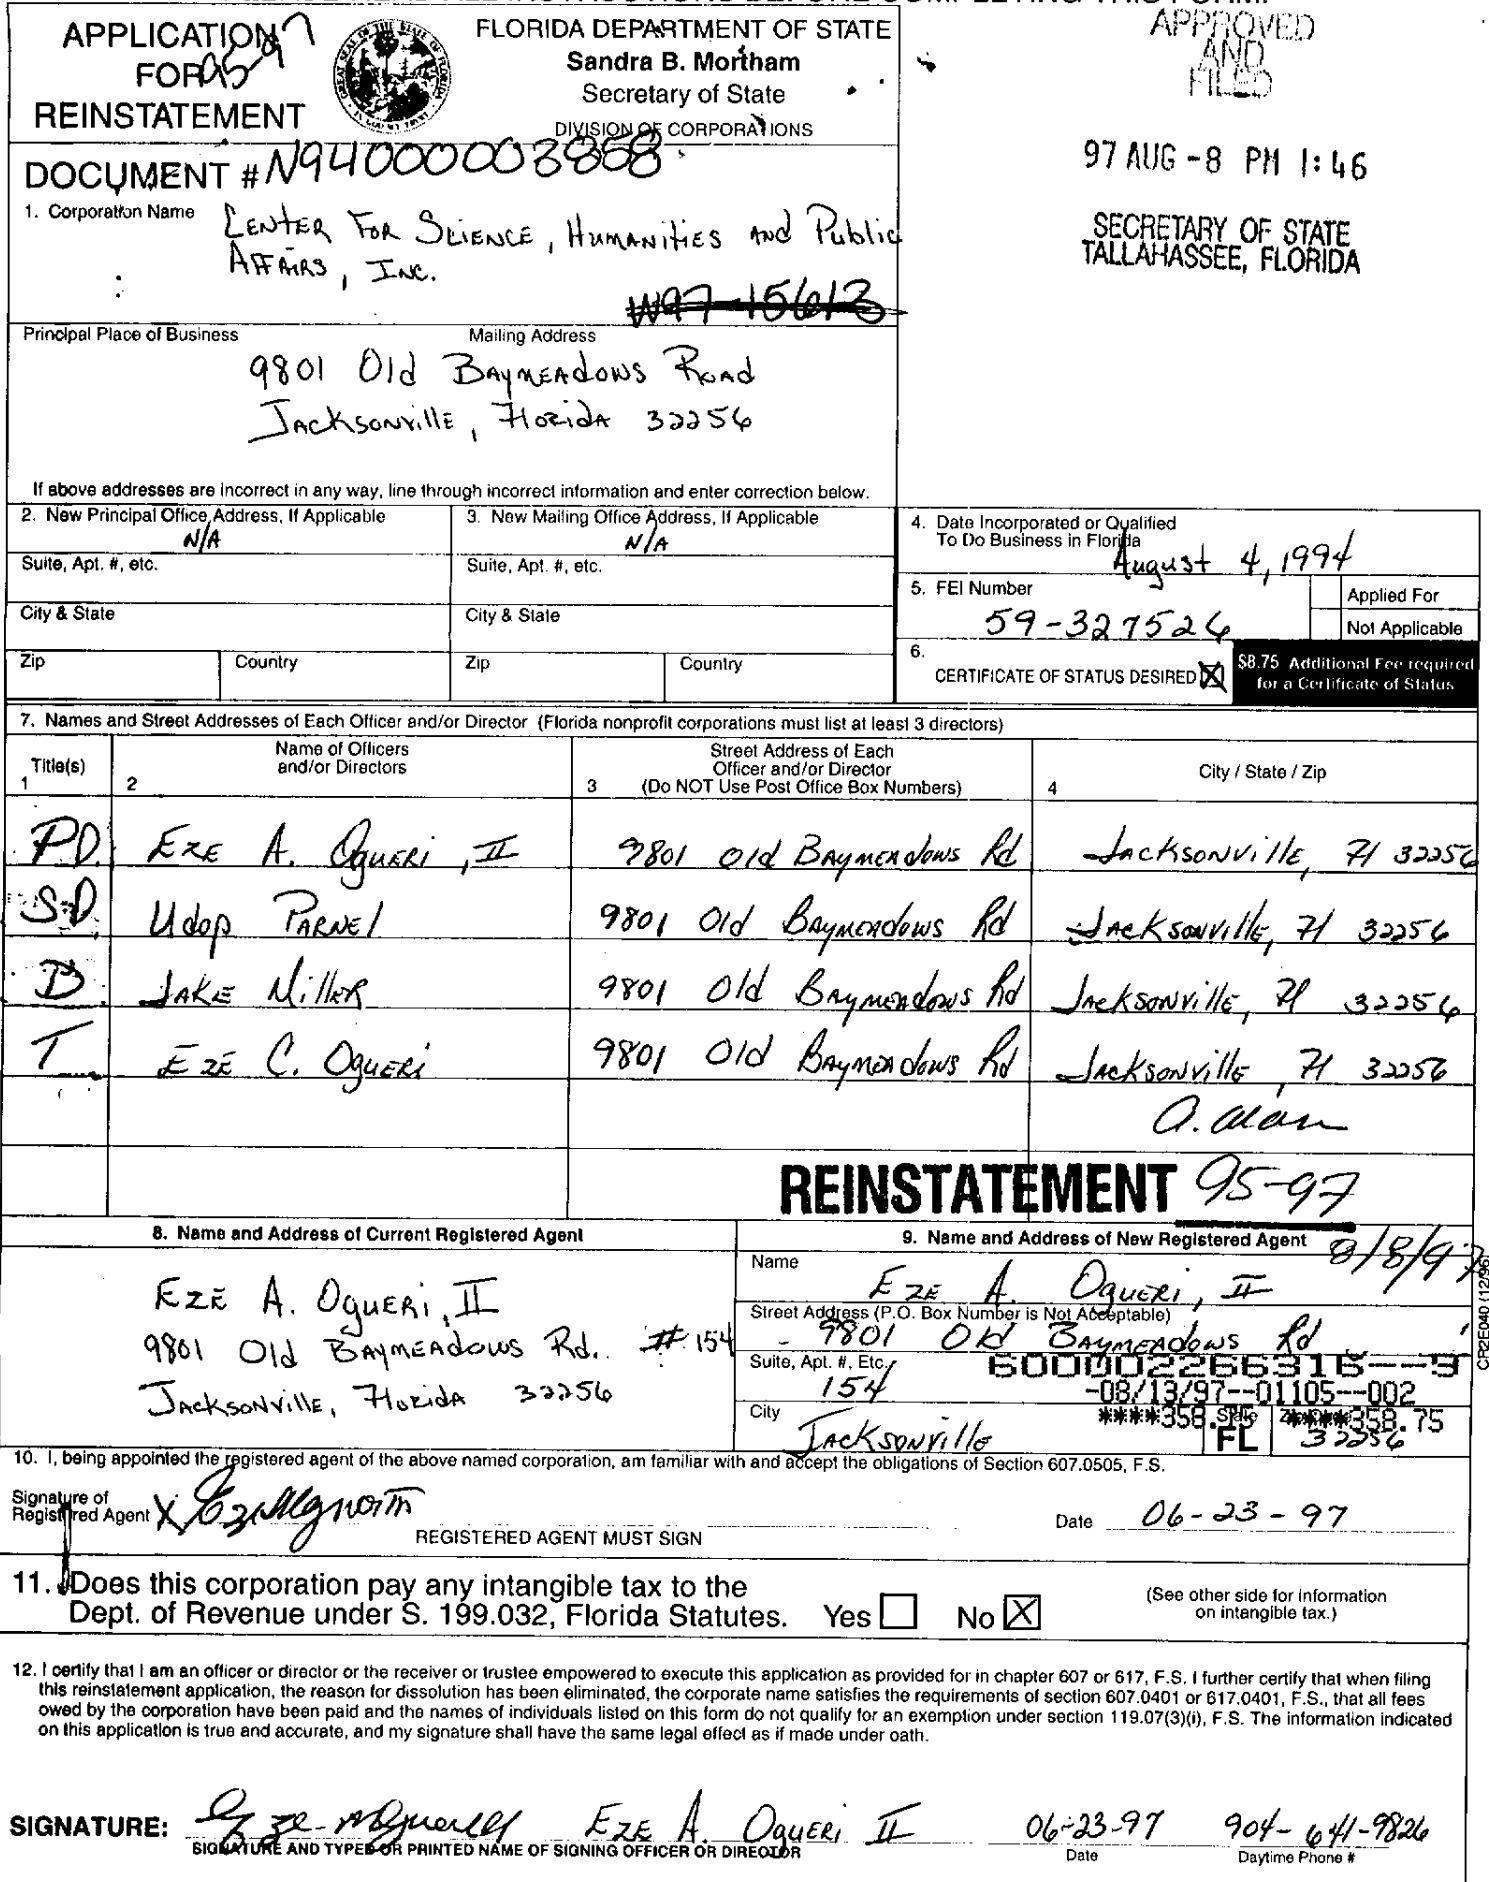 APPLICATION
FOR
REINSTATEMENT
95-97
FLORIDA DEPARTMENT OF STATE
Sandra B. Mortham
Secretary of State
DIVISION OF CORPORATIONS
APPROVED
AND
FILED
97 AUG -8 PM 1:46
SECRETARY OF STATE
TALLAHASSEE, FLORIDA
DOCUMENT # N94000003858
1. Corporation Name
CENTER FOR SCIENCE, HUMANITIES AND Public
AFFAIRS, INC.
W97-15613
Principal Place of Business
Mailing Address
9801 Old BAYMEADOWS ROAD
JACKSONVillE, FloRidA 32256
If above addresses are incorrect in any way, line through incorrect information and enter correction below.
2. New Principal Office Address, If Applicable
N/A
3. New Mailing Office Address, If Applicable
N/A
Suite, Apt. #, etc.
Suite, Apt. #, etc.
City & State
City & State
Zip
Country
Zip
Country
4. Date Incorporated or Qualified
To Do Business in Florida
August 4, 1994
5. FEI Number
59-327526
Applied For
Not Applicable
6.
CERTIFICATE OF STATUS DESIRED X
$8.75 Additional Fee required
for a Certificate of Status
7. Names and Street Addresses of Each Officer and/or Director (Florida nonprofit corporations must list at least 3 directors)
Title(s)
1
Name of Officers
and/or Directors
2
Street Address of Each
Officer and/or Director
3 (Do NOT Use Post Office Box Numbers)
City / State / Zip
4
P.D. EZE A. OGUERI, II 9801 Old BAYMEADOWS Rd JACKSONVillE, Fl 32256
S.D. Udop PARNEl 9801 Old BAYMEADOWS Rd JACKSONVillE, Fl 32256
D JAKE MillER 9801 Old BAYMEADOWS Rd JACKSONVillE, Fl 32256
T EZE C. OGUERI 9801 Old BAYMEADOWS Rd JACKSONVillE, Fl 32256
REINSTATEMENT 95-97
8. Name and Address of Current Registered Agent
EZE A. OGUERI, II
9801 Old BAYMEADOWS Rd. # 154
JACKSONVillE, FloRidA 32256
9. Name and Address of New Registered Agent
8/8/97
Name
EZE A. OGUERI, II
Street Address (P.O. Box Number is Not Acceptable)
9801 Old BAYMEADOWS Rd
Suite, Apt. #, Etc.
154
600002266316--9
-08/13/97--01105--002
****358.75 ****358.75
City
JACKSONVillE
State
FL
32256
CR2E040 (12/96)
10. I, being appointed the registered agent of the above named corporation, am familiar with and accept the obligations of Section 607.0505, F.S.
Signature of
Registered Agent X
REGISTERED AGENT MUST SIGN
Date 06-23-97
11. Does this corporation pay any intangible tax to the
Dept. of Revenue under S. 199.032, Florida Statutes. Yes No X
(See other side for information
on intangible tax.)
12. I certify that I am an officer or director or the receiver or trustee empowered to execute this application as provided for in chapter 607 or 617, F.S. I further certify that when filing
this reinstatement application, the reason for dissolution has been eliminated, the corporate name satisfies the requirements of section 607.0401 or 617.0401, F.S., that all fees
owed by the corporation have been paid and the names of individuals listed on this form do not qualify for an exemption under section 119.07(3)(i), F.S. The information indicated
on this application is true and accurate, and my signature shall have the same legal effect as if made under oath.
SIGNATURE: EZE A. OGUERI II 06-23-97 904-641-9826
SIGNATURE AND TYPED OR PRINTED NAME OF SIGNING OFFICER OR DIRECTOR
Date
Daytime Phone #